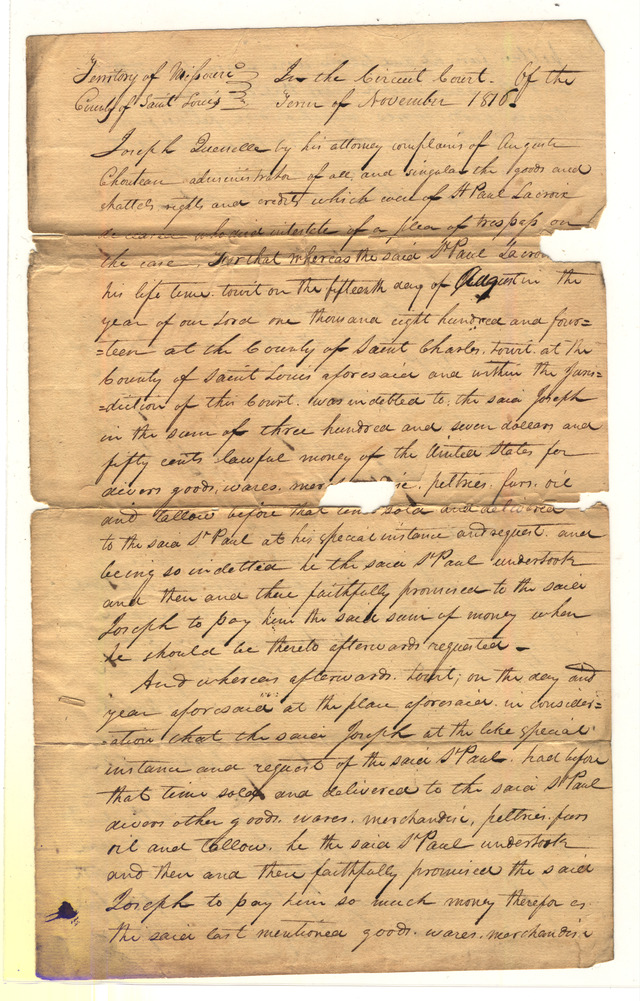 Territory of Missouri In the Circuit Court. Of the
County of Saint Louis Term of November 1816.
Joseph Quenelle by his attorney complains of Auguste
Chouteau administrator of all and singular the goods and
chattels rights and credits which were of St Paul Lacroix
deceased who died intestate of a plea of trespass on
the case. For that whereas the said St Paul Lacroi
his life time. towit on the fifteenth day of August in the
year of our Lord one thousand eight hundred and four=
=teen at the County of Saint Charles. towit. at the
County of Saint Louis aforesaid and within the Juris=
=diction of this Court. was indebted to the said Joseph
in the sum of three hundred and seven dollars and
fifty cents lawful money of the United States for
divers goods. wares. mer se. peltries. furs. oil
and tallow before that time sold and delivered
to the said St Paul at his special instance and request. and
being so indebted he the said St Paul undertook
and then and there faithfully promised to the said
Joseph to pay him the said sum of money when
he should be thereto afterwards requested -
And whereas afterwards. towit; on the day and
year aforesaid at the place aforesaid. in consider=
=ation that the said Joseph at the like special
instance and request of the said St Paul. had before
that time sold and delivered to the said St Paul
divers other goods. wares. merchandise, peltries. furs
oil and tallow. he the said St Paul undertook
and then and there faithfully promised the said
Joseph to pay him so much money therefor as
the said last mentioned goods. wares. merchandise